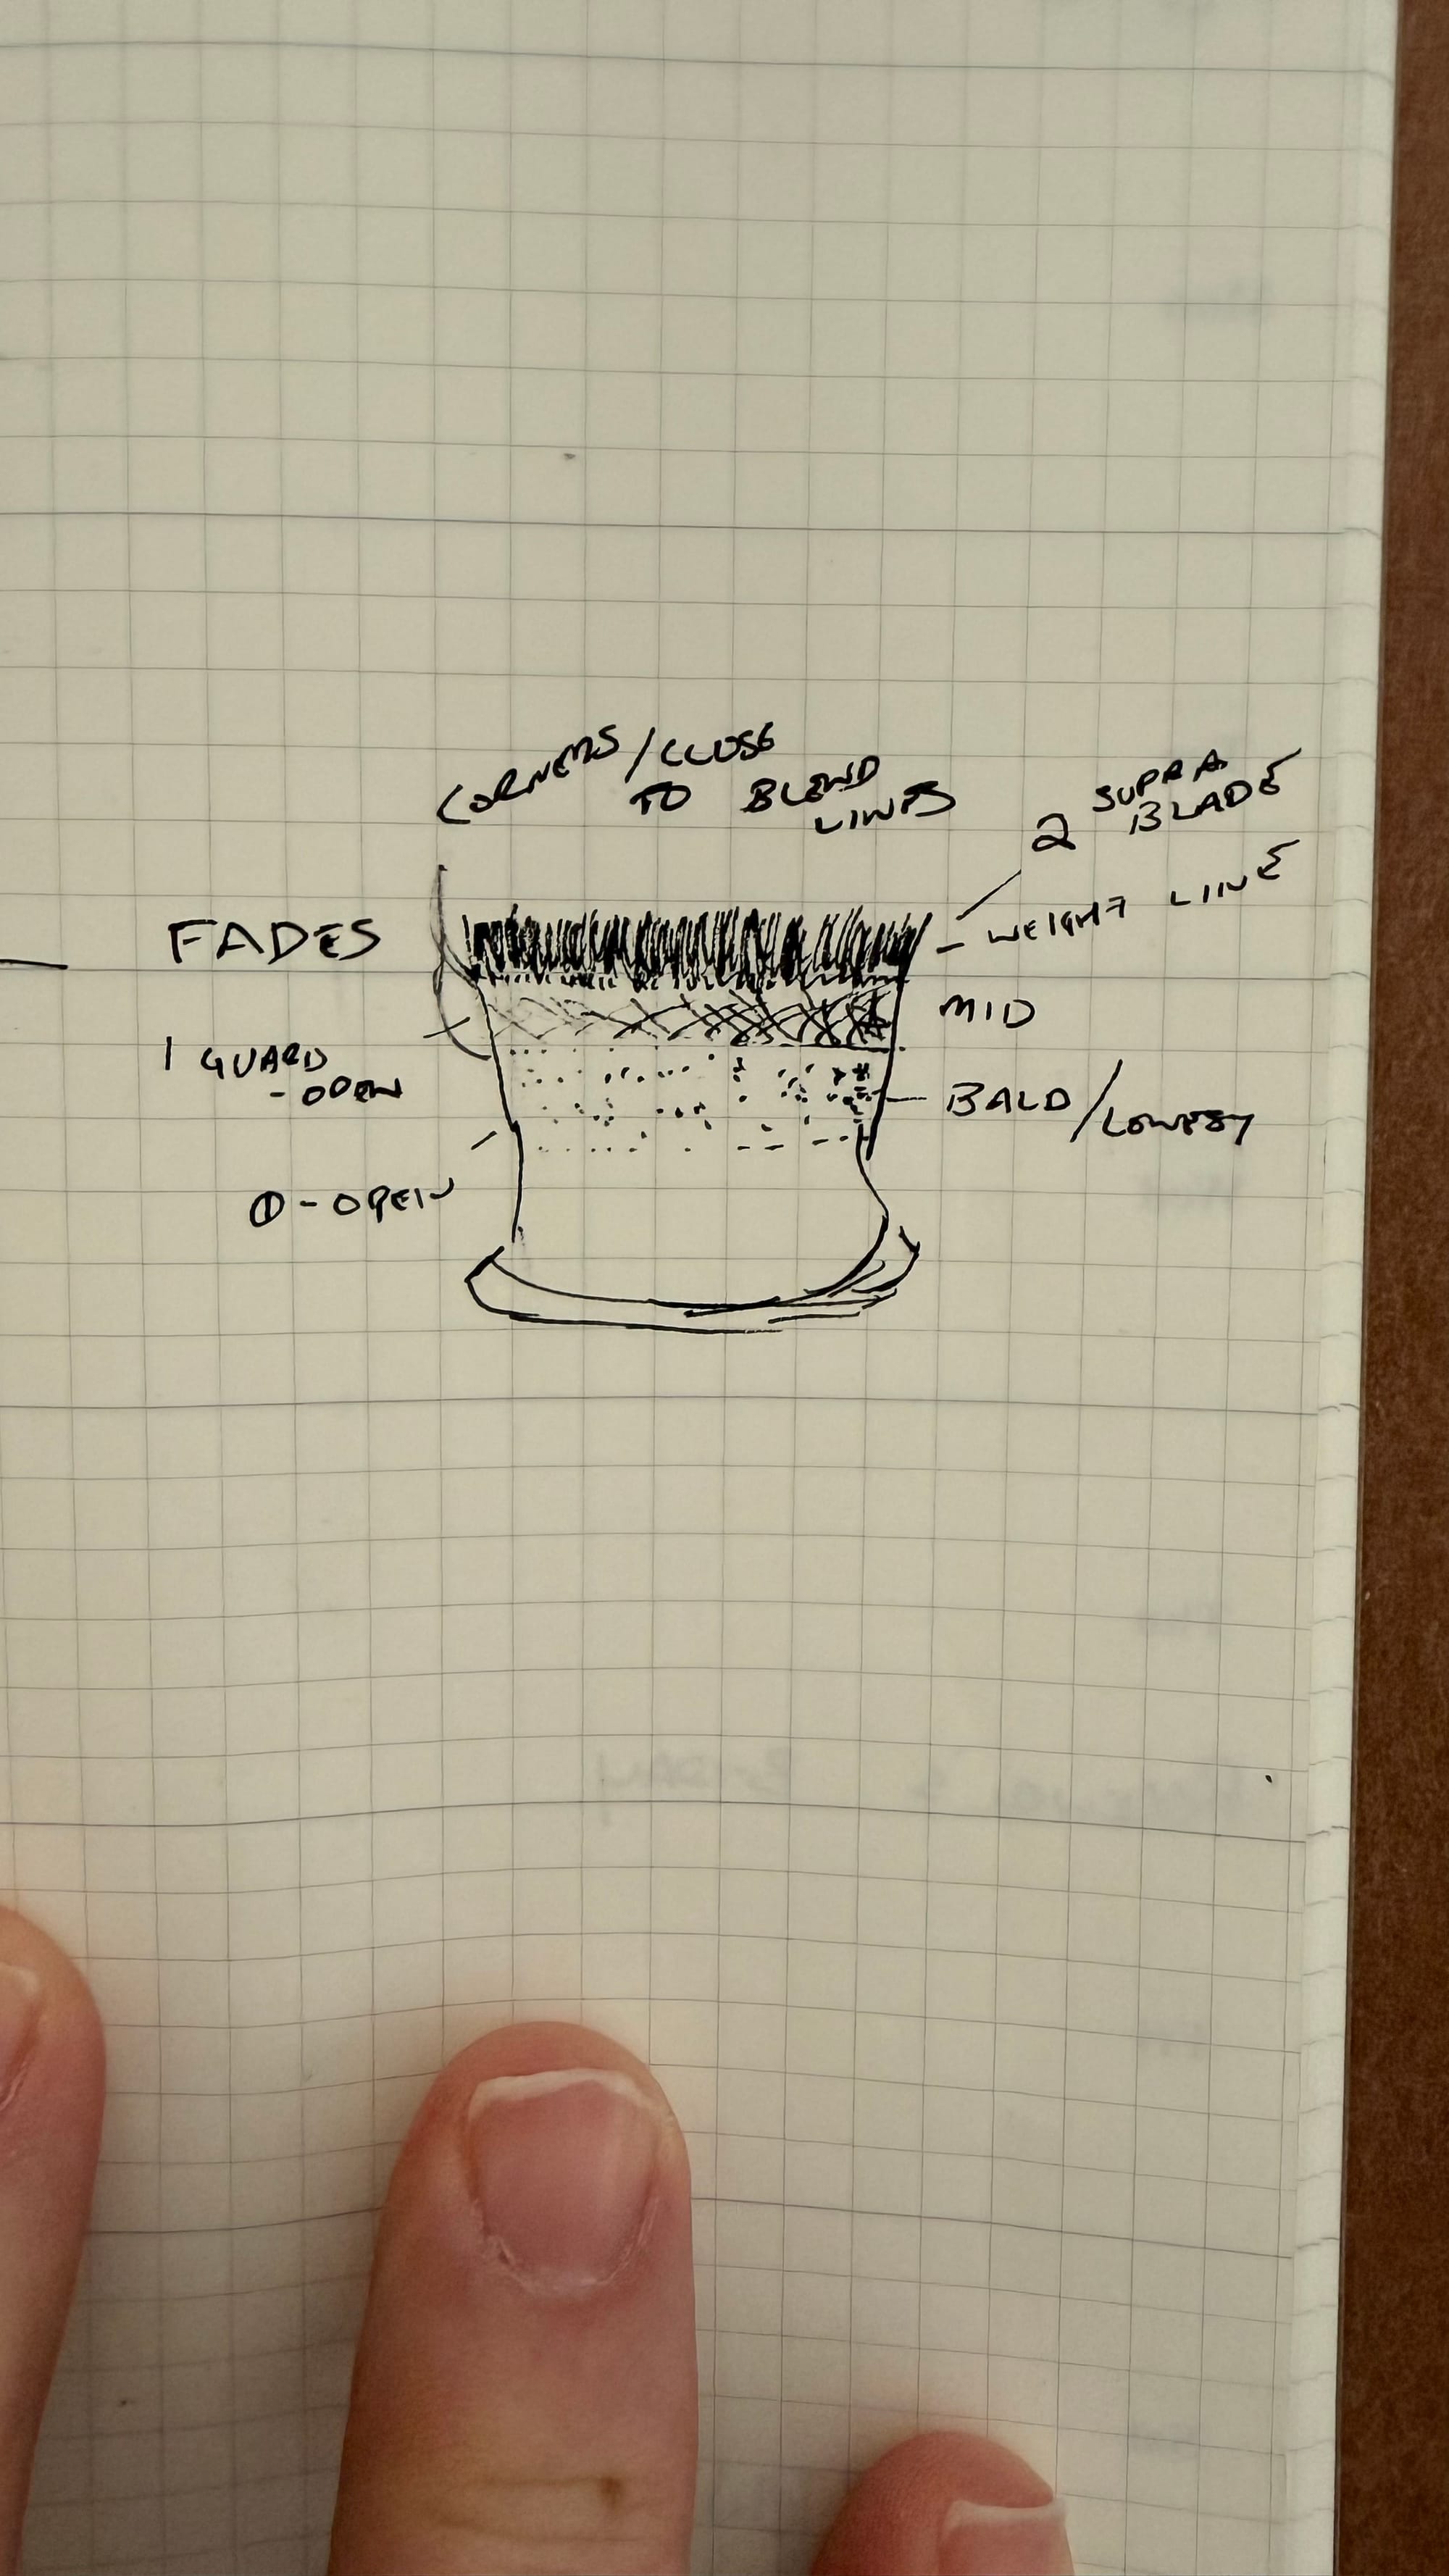 CORNERS/CLOSE
TO BLEND
LINES
2 SUPRA
BLADE
WEIGHT LINE
FADES
MID
1 GUARD
- OPEN
BALD/LOWEST
0 - OPEN